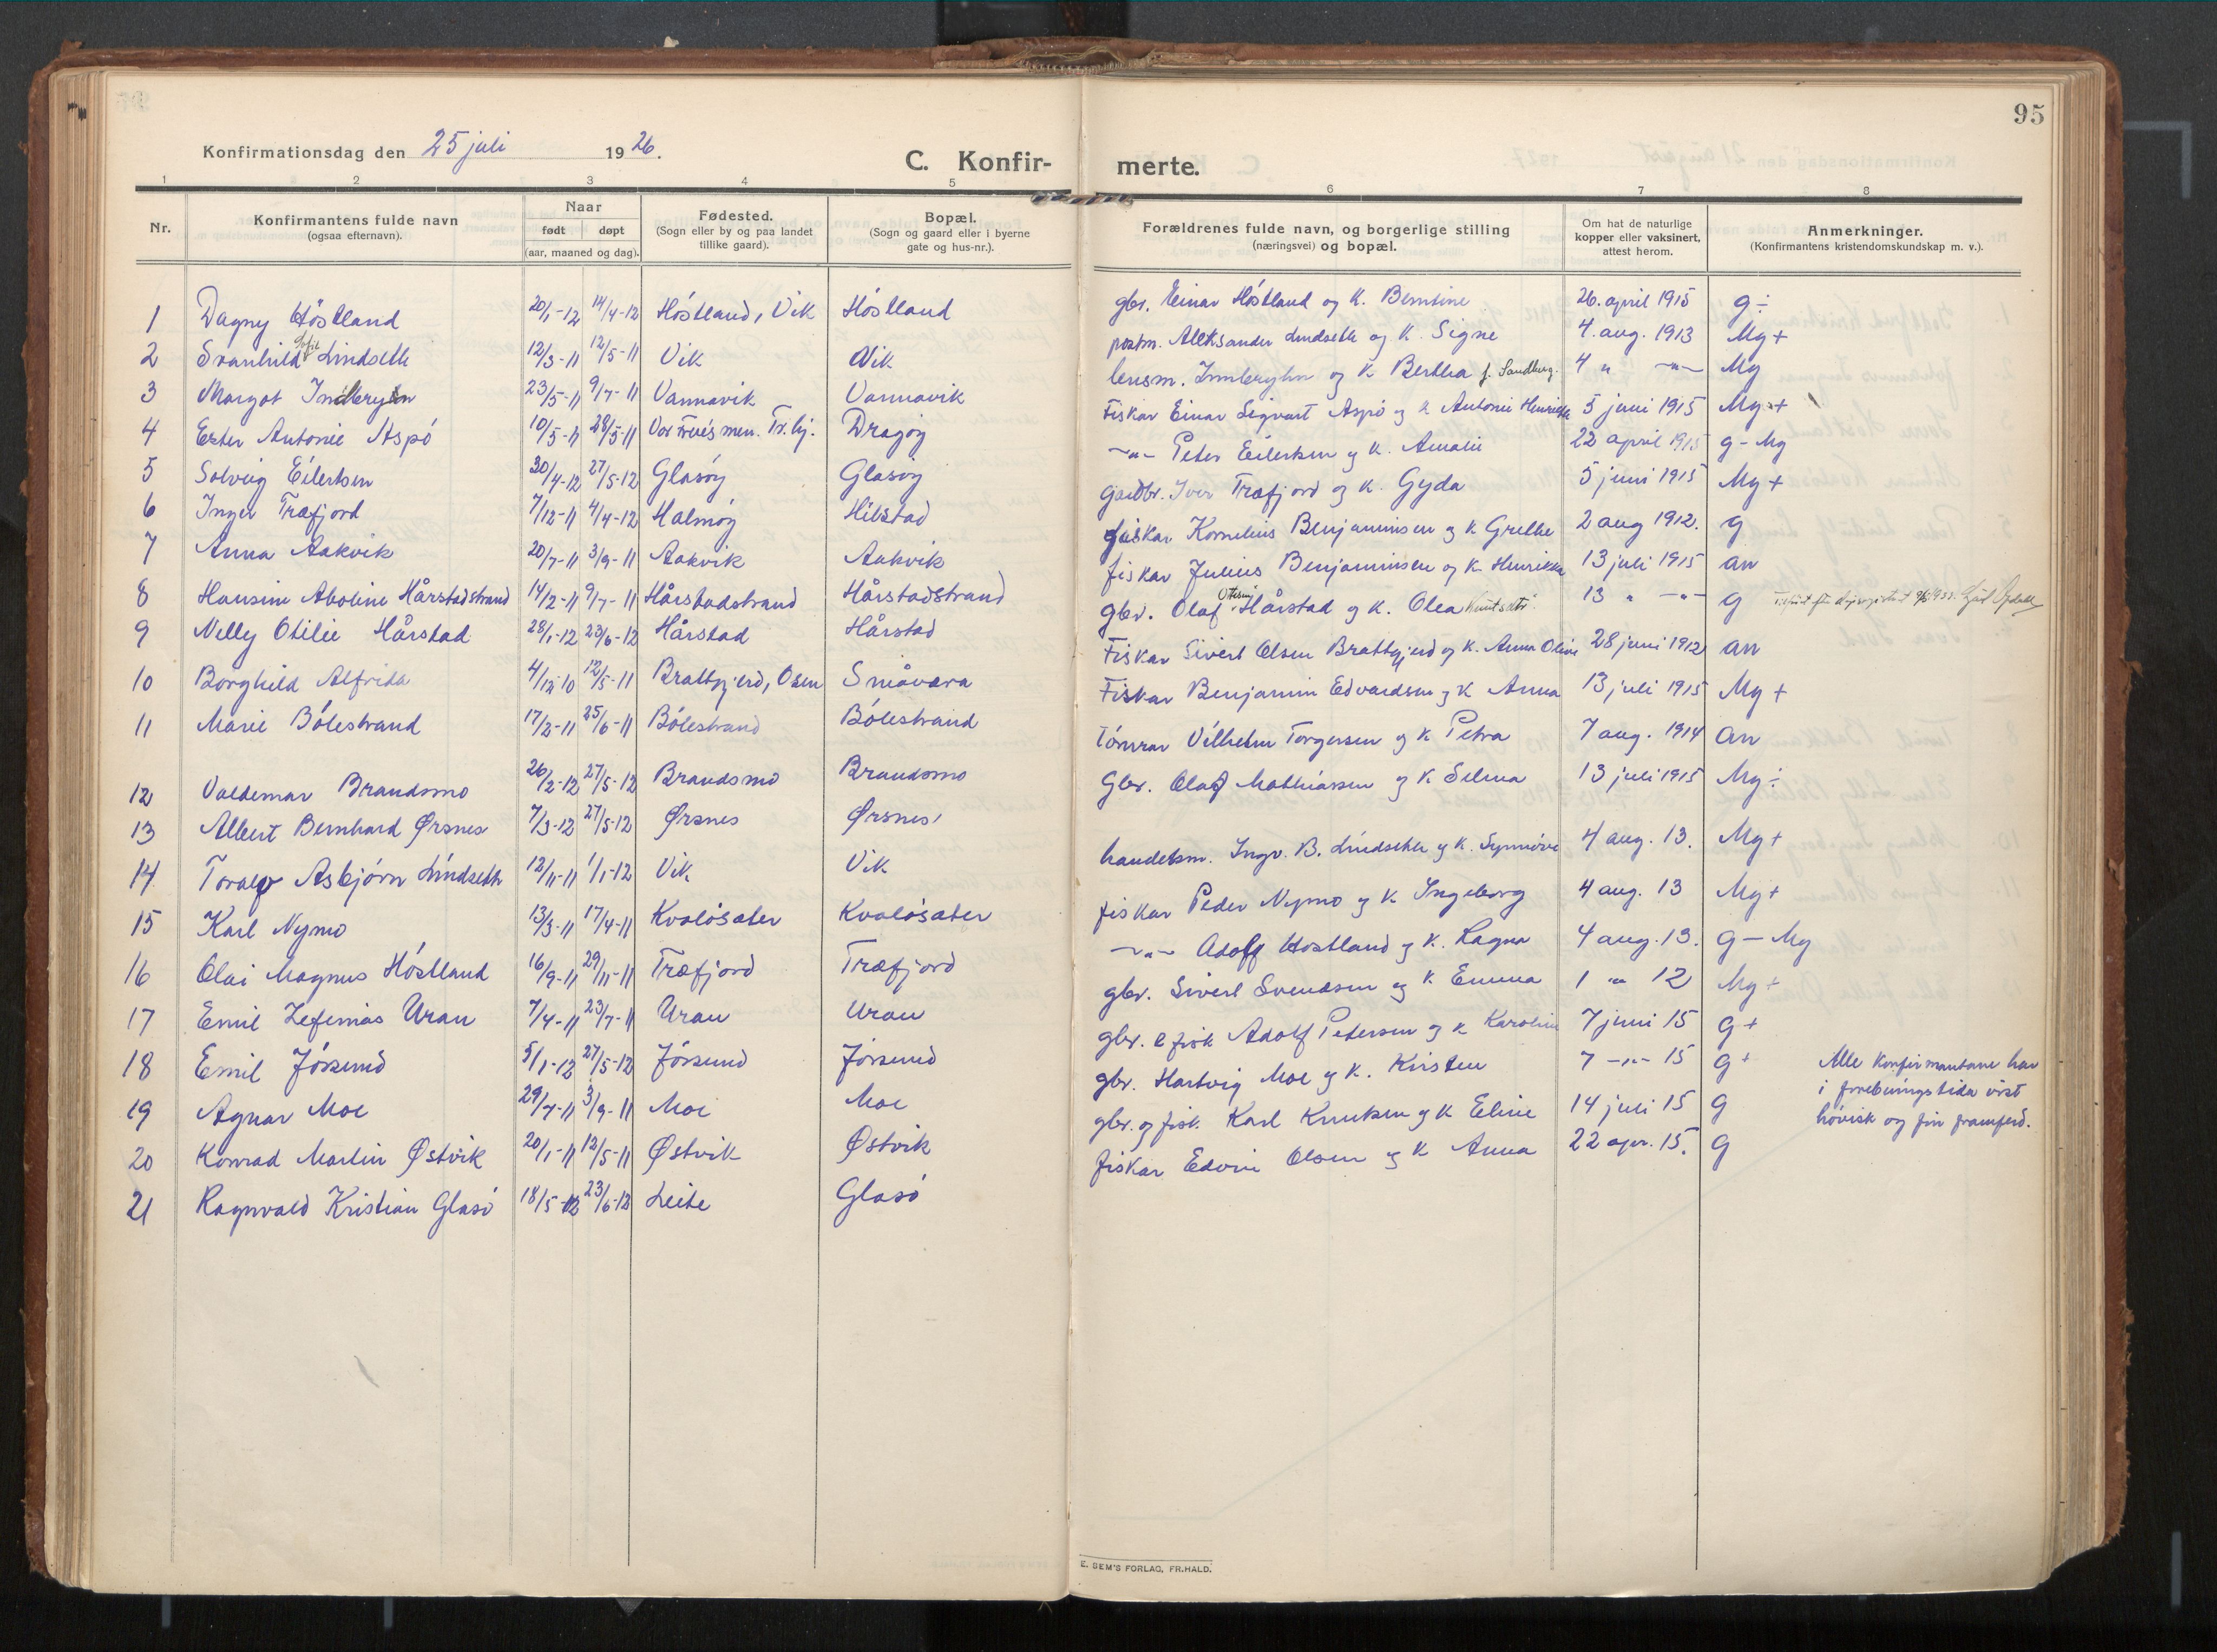 95
Konfirmationsdag den 25 juli 1926.
C. Konfir- merte.
1 2 3 4 5 6 7 8
Nr. Konfirmantens fulde navn (ogsaa efternavn). Naar født døpt (aar, maaned og dag). Fødested. (Sogn eller by og paa landet tillike gaard). Bopæl. (Sogn og gaard eller i byerne gate og hus-nr.). Forældrenes fulde navn, og borgerlige stilling (næringsvei) og bopæl. Om hat de naturlige kopper eller vaksinert, attest herom. Anmerkninger. (Konfirmantens kristendomskundskap m. v.).
1 Dagny Höstland 20/1-12 14/4-12 Höstland, Vik Höstland gbr. Einar Höstland og k. Berntine 26. april 1915 g÷
2 Svanhild Sofie Lindseth 12/3-11 12/5-11 Vik Vik postm. Aleksander Lindseth og k. Signe 4. aug. 1913 Mg+
3 Margot Inderyhn 23/5-11 9/7-11 Vannavik Vannavik lensm. Innberyhn og k Bertha f. Sandberg. 4 " -"- Mg
4 Ester Antonie Aspö 10/5-11 28/5-11 Vor Frues men. Tr.hj. Dragöy Fiskar Einar Sigvart Aspö og k Antonie Henrikke 5 juni 1915 Mg+
5 Solveig Eilertsen 30/4-12 27/5-12 Glasöy Glasöy -"- Peter Eilertsen og k. Amalie 22 april 1915 g-Mg
6 Inger Træfjord 7/12-11 4/4-12 Halmöy Hilstad gardbr. Iver Træfjord og k. Gyda 5 juni 1915 Mg+
7 Anna Aakvik 20/7-11 3/9-11 Aakvik Aakvik fiskar Kornelius Benjaminsen og k Grethe 2 aug 1912. g
8 Hansine Aboline Hårstadstrand 14/2-11 9/7-11 Hårstadstrand Hårstadstrand fiskar Julius Benjaminsen og k Henrikka 13 juli 1915 an
9 Nelly Otilie Hårstad 28/1-12 23/6-12 Hårstad Hårstad gbr. Olaf Hårstad og k. Olea 13 " -"- g
10 Borghild Alfrida 4/12-10 12/5-11 Brattgjerd, Osen Småværa Fiskar Sivert Olsen Brattgjerd og k. Anna Oline 28 juni 1912 an
11 Marie Bölestrand 17/2-11 25/6-11 Bölestrand Bölestrand Fiskar Benjamin Edvardsen og k Anna 13 juli 1915 Mg+
12 Valdemar Brandsmo 26/2-12 27/5-12 Brandsmo Brandsmo Tömrar Vilhelm Torgersen og k Petra 7 aug. 1914 an
13 Albert Bernhard Ørsnes 7/3-12 27/5-12 Ørsnes Ørsnes Gbr. Olaf Mathiassen og k Selma 13 juli 1915 Mg÷
14 Toralf Asbjörn Lindseth 12/11-11 1/1-12 Vik Vik handelsm. Ingv. B. Lindseth og k. Synnöve 4 aug. 13. Mg+
15 Karl Nymo 13/3-11 17/4-11 Kvalösæter Kvalösæter fiskar Peder Nymo og k Ingeborg 4 aug. 13 Mg+
16 Olai Magnus Höstland 16/9-11 29/11-11 Træfjord Træfjord -"- Adolf Höstland og k. Ragna 4 aug. 13. g-Mg
17 Emil Zefenias Uran 7/4-11 23/7-11 Uran Uran gbr. Sivert Svendsen og k Emma 1 " 12 Mg+
18 Emil Jössund 5/1-12 27/5-12 Jössund Jössund gbr. e fisk Adolf Petersen og k Karoline 7 juni 15 g+
19 Agnar Moe 29/7-11 3/9-11 Moe Moe gbr. Hartvig Moe og k. Kirsten 7 -"- 15 g+
20 Konrad Martin Østvik 20/1-11 12/5-11 Østvik Østvik gbr. og fisk. Karl Knutsen og k Eline 14 juli 15 g
21 Ragnvald Kristian Glasö 18/5-12 23/6-12 Leite Glasö fiskar Edvin Olsen og k Anna 22 apr. 15. g
Alle konfirmantane har
i fyrebuingstida vist
hövisk og fin framferd.
E. SEM'S FORLAG, FR.HALD.